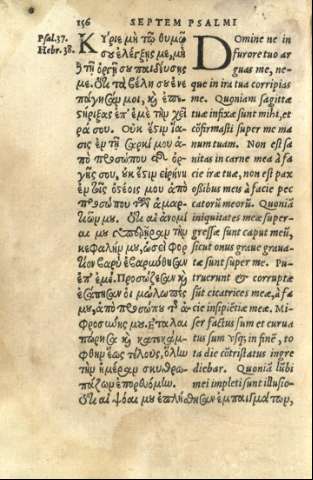 156 SEPTEM PSALMI
Psal. 37.
Hebr. 38.
Κύριε μὴ τῷ θυμῷ
σου ἐλέγξῃς με, μὴ
δὲ τῇ ὀργῇ σου παιδεύσῃς
με. Ὅτι τὰ βέλη σου ἐνε
πάγησάν μοι, καὶ ἐπε-
στήριξας ἐπ' ἐμὲ τὴν χεῖ
ρά σου. Οὐκ ἔστιν ἴα-
σις ἐν τῇ σαρκί μου ἀπὸ
προσώπου τῆς ὀρ-
γῆς σου, οὐκ ἔστιν εἰρήνη
ἐν τοῖς ὀστέοις μου ἀπὸ
προσώπου τῶν ἁμαρ-
τιῶν μου. Ὅτι αἱ ἀνομί
αι μου ὑπερῆραν τὴν
κεφαλήν μου, ὡσεὶ φορ
τίον βαρὺ ἐβαρύνθησαν
ἐπ' ἐμέ. Προσώζεσαν καὶ
ἐσάπησαν οἱ μώλωπές
μου, ἀπὸ προσώπου τῆς ἀ-
φροσύνης μου. Ἐταλαι
πώρησα καὶ κατεκάμ-
φθην ἕως τέλους, ὅλην
τὴν ἡμέραν σκυθρω-
πάζων ἐπορευόμην.
Ὅτι αἱ ψόαι μου ἐπλήσθησαν ἐμπαιγμάτων,
Domine ne in
furore tuo ar
guas me, ne-
que in ira tua corripias
me. Quoniam sagittæ
tuæ infixæ sunt mihi, et
cõfirmasti super me ma
num tuam. Non est sa
nitas in carne mea à fa
cie iræ tuæ, non est pax
ossibus meis à facie pec
catorũ meorũ. Quoniã
iniquitates meæ super-
gressæ sunt caput meũ,
sicut onus graue graua-
tæ sunt super me. Pu-
truerunt & corruptæ
sũt cicatrices meæ, à fa
cie insipiẽtiæ meæ. Mi-
ser factus sum et curua
tus sum vsq; in finẽ, to
ta die cõtristatus ingre
diebar. Quoniã lũbi
mei impleti sunt illusio-